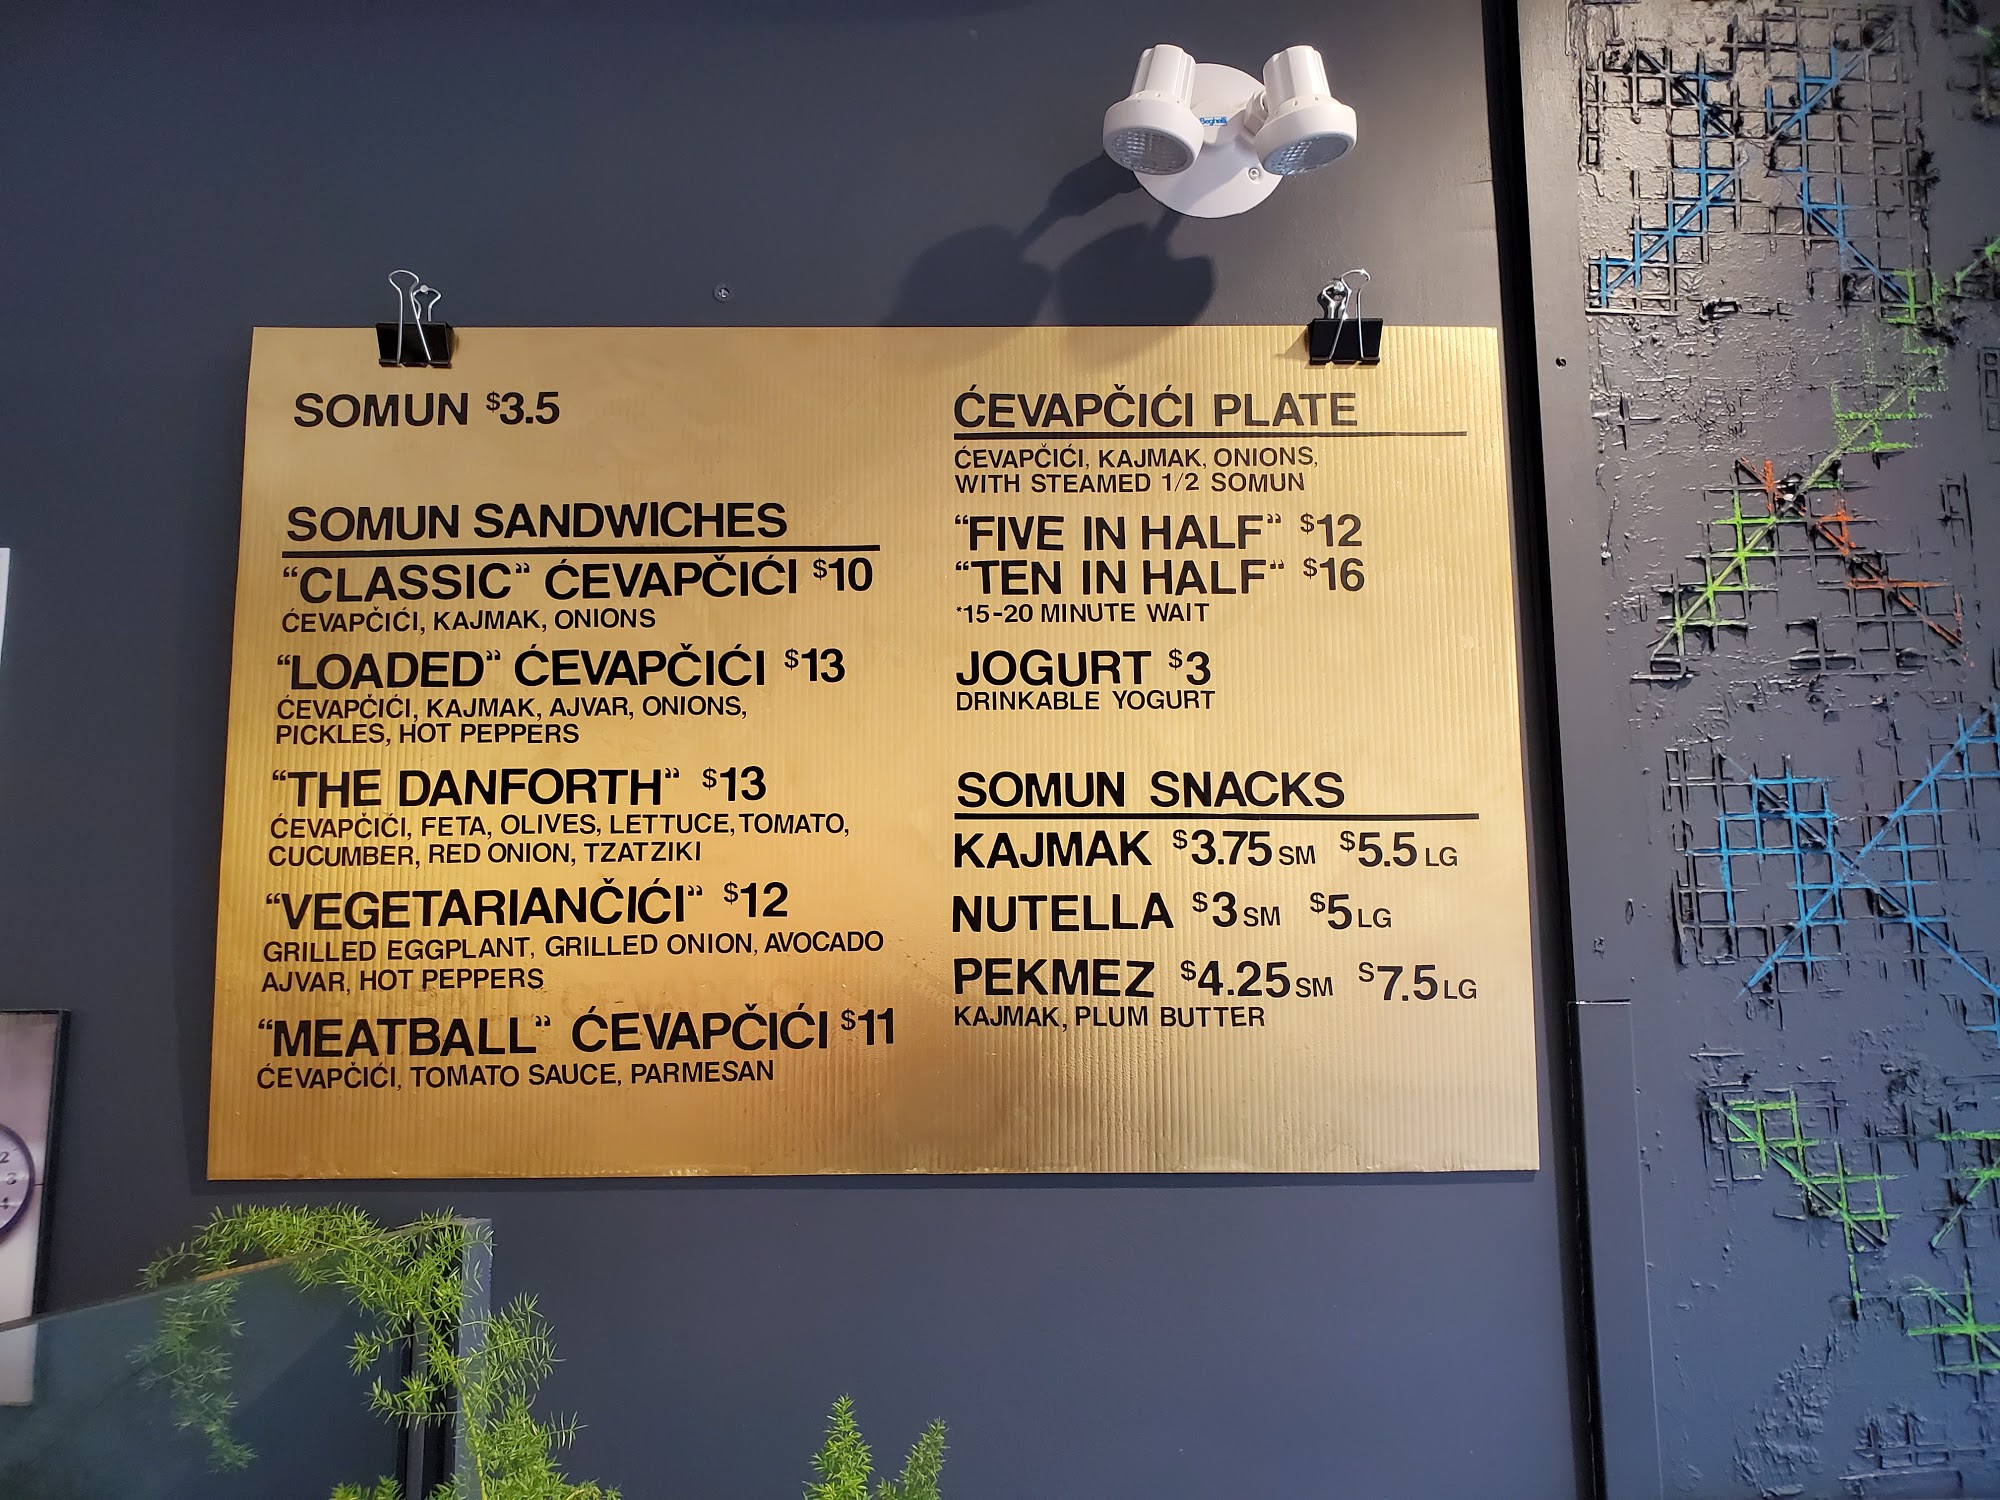 Beghelli
SOMUN $3.5
SOMUN SANDWICHES
“CLASSIC” ĆEVAPČIĆI $10
ĆEVAPČIĆI, KAJMAK, ONIONS
“LOADED” ĆEVAPČIĆI $13
ĆEVAPČIĆI, KAJMAK, AJVAR, ONIONS,
PICKLES, HOT PEPPERS
“THE DANFORTH” $13
ĆEVAPČIĆI, FETA, OLIVES, LETTUCE, TOMATO,
CUCUMBER, RED ONION, TZATZIKI
“VEGETARIANČIĆI” $12
GRILLED EGGPLANT, GRILLED ONION, AVOCADO
AJVAR, HOT PEPPERS
“MEATBALL” ĆEVAPČIĆI $11
ĆEVAPČIĆI, TOMATO SAUCE, PARMESAN
ĆEVAPČIĆI PLATE
ĆEVAPČIĆI, KAJMAK, ONIONS,
WITH STEAMED 1/2 SOMUN
“FIVE IN HALF” $12
“TEN IN HALF” $16
*15-20 MINUTE WAIT
JOGURT $3
DRINKABLE YOGURT
SOMUN SNACKS
KAJMAK $3.75 SM $5.5 LG
NUTELLA $3 SM $5 LG
PEKMEZ $4.25 SM $7.5 LG
KAJMAK, PLUM BUTTER
2
3
4